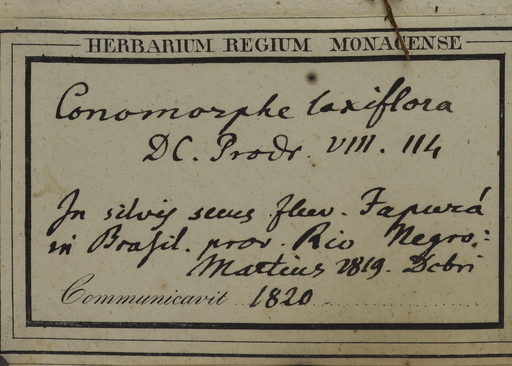 HERBARIUM REGIUM MONACENSE
Conomorphe laxiflora
DC. Prodr. VIII. 114
In silvis secus fluv. Japurá
in Brasil. prov. Rio Negro:
Martius 1819. Dcbri
Communicavit 1820